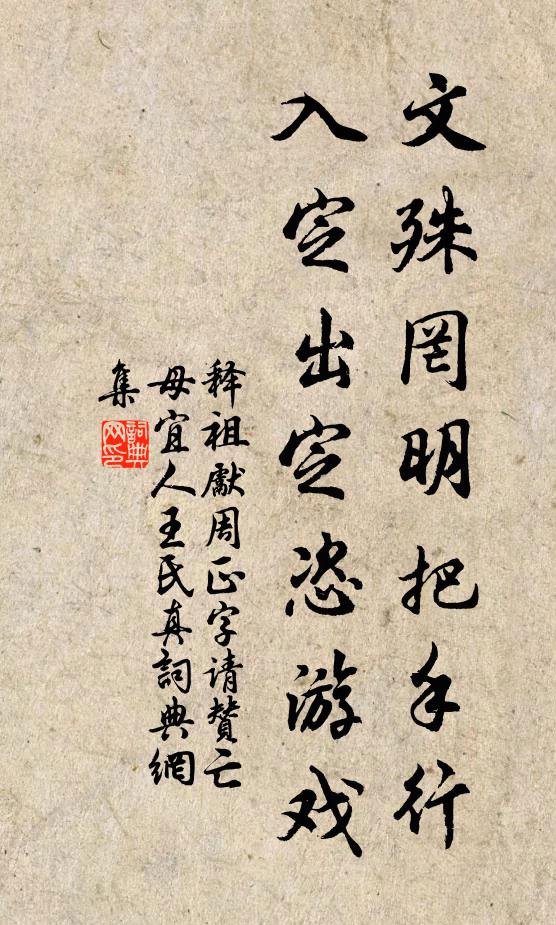 文殊罔明把手行
入定出定恣游戏
释祖献周正字请赞亡
母宜人王氏真詞典網
集
詞典网印